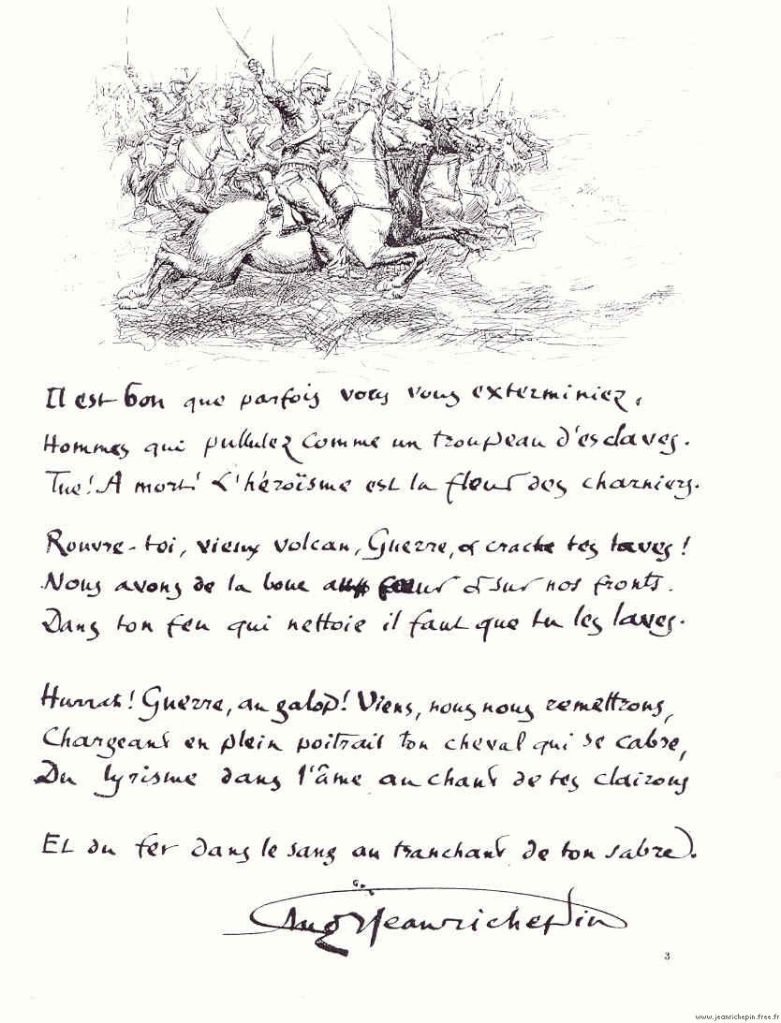 Il est bon que parfois vous vous exterminiez,
Hommes qui pullulez comme un troupeau d'esclaves.
Tue! A mort! L'héroïsme est la fleur des charniers.
Rouvre-toi, vieux volcan, Guerre, et crache tes laves!
Nous avons de la boue au cœur et sur nos fronts.
Dans ton feu qui nettoie il faut que tu les laves.
Hurrah! Guerre, au galop! Viens, nous nous remettrons,
Chargeant en plein poitrail ton cheval qui se cabre,
Du lyrisme dans l'âme au chant de tes clairons
Et du fer dans le sang au tranchant de ton sabre.
Jean Richepin
3
www.jeanrichepin.free.fr